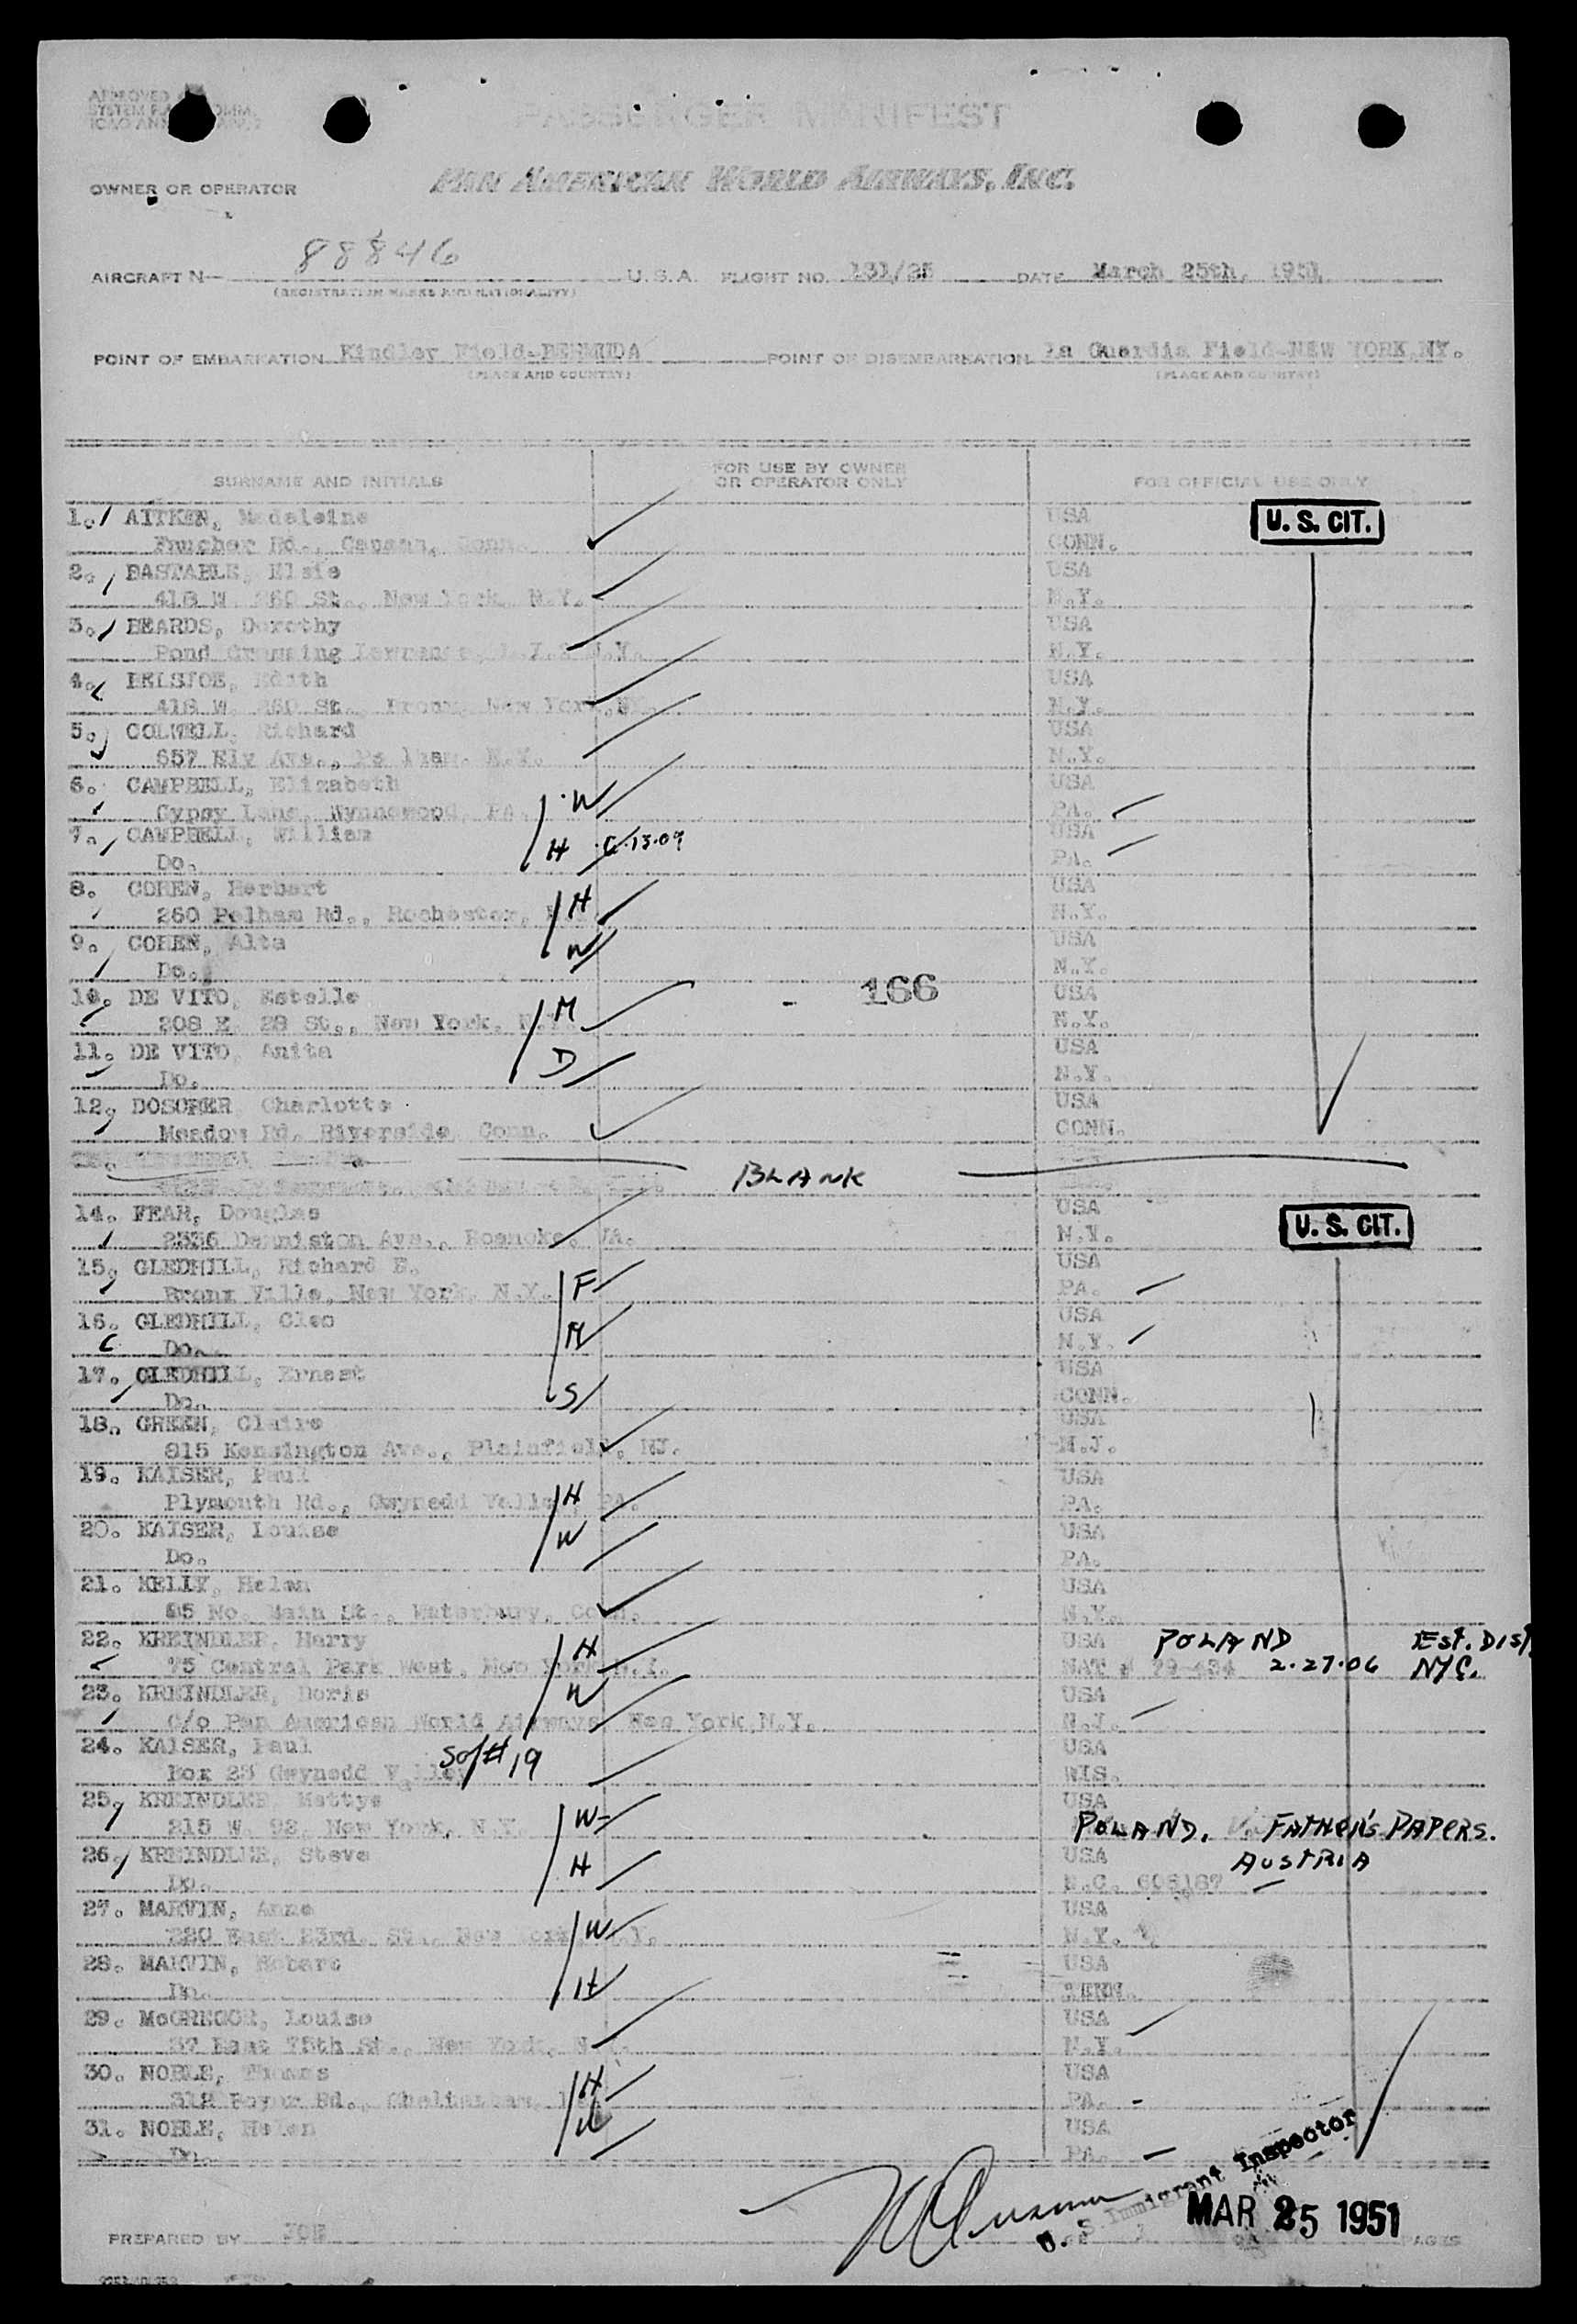 PASSENGER MANIFEST
OWNER OR OPERATOR PAN AMERICAN WORLD AIRWAYS, INC.
88846
AIRCRAFT N— U.S.A. FLIGHT NO. 131/25 DATE March 25th, 1951
(REGISTRATION MARKS AND NATIONALITY)
POINT OF EMBARKATION Kindley Field-BERMUDA POINT OF DISEMBARKATION La Guardia Field-NEW YORK,NY.
(PLACE AND COUNTRY) (PLACE AND COUNTRY)
SURNAME AND INITIALS FOR USE BY OWNER OR OPERATOR ONLY FOR OFFICIAL USE ONLY
1. AITKEN, Madeleine USA U. S. CIT.
Rd., Conn. CONN.
2. BASTABLE, Elsie USA
418 W 260 St., New York, N.Y. N.Y.
3. BEARDS, Dorothy USA
Pond Crossing Lawrence, N.Y.
4. Edith USA
418 W. 260 St., Bronx, New York,NY. N.Y.
5. COLWELL, Richard USA
657 Ely Ave., Pelham. N.Y. N.Y.
6. CAMPBELL, Elizabeth W USA
Gypsy Lane, Wynnewood, PA. PA.
7. CAMPBELL, William USA
Do. H 13.09 PA.
8. COHEN, Herbert H USA
260 Pelham Rd., Rochester, N.Y.
9. COHEN, Alta W USA
Do. N.Y.
166
10. DE VITO, Estelle M USA
208 E. 28 St., New York, N.Y. N.Y.
11. DE VITO, Anita D USA
Do. N.Y.
12. DOSCHER, Charlotte USA
Meadow Rd. Riverside, Conn. CONN.
BLANK
14. FEAR, Douglas USA U. S. CIT.
2336 Denniston Ave., Roanoke, VA. N.Y.
15. GLEDHILL, Richard E. F USA
Bronx Ville, New York, N.Y. PA.
16. GLEDHILL, Cleo M USA
Do. N.Y.
17. GLEDHILL, Ernest S USA
Do. CONN.
18. GREEN, Claire USA
815 Kensington Ave., Plainfield, NJ. N.J.
19. KAISER, Paul H USA
Plymouth Rd., Gwynedd Valley, PA. PA.
20. KAISER, Louise W USA
Do. PA.
21. KELLY, Helen USA
95 No. Main St., Waterbury, Conn. N.Y.
22. KREINDLER, Harry H USA POLAND Est. Dist.
75 Central Park West, New York, NAT # 2·27·06 NYC.
23. KREINDLER, Doris W USA
c/o Pan American World Airways New York,N.Y. N.J.
24. KAISER, Paul #19 USA
Box 25 Gwynedd Valley WIS.
25. KREINDLER, Mattye W USA
215 W. 92, New York, N.Y. POLAND. FATHER'S PAPERS.
26. KREINDLER, Steve H USA AUSTRIA
Do. N.C.
27. MARVIN, Anne W USA
East 23rd. St., New York, N.Y.
28. MARVIN, H USA
Do.
29. McGREGOR, Louise USA
37 East 75th St., New York, N.Y.
30. NOBLE, Thomas H USA
312 Boyer Rd., Cheltenham, PA.
31. NOBLE, Helen W USA
Do. PA.
U. S. Immigrant Inspector
MAR 25 1951
PREPARED BY PAGES